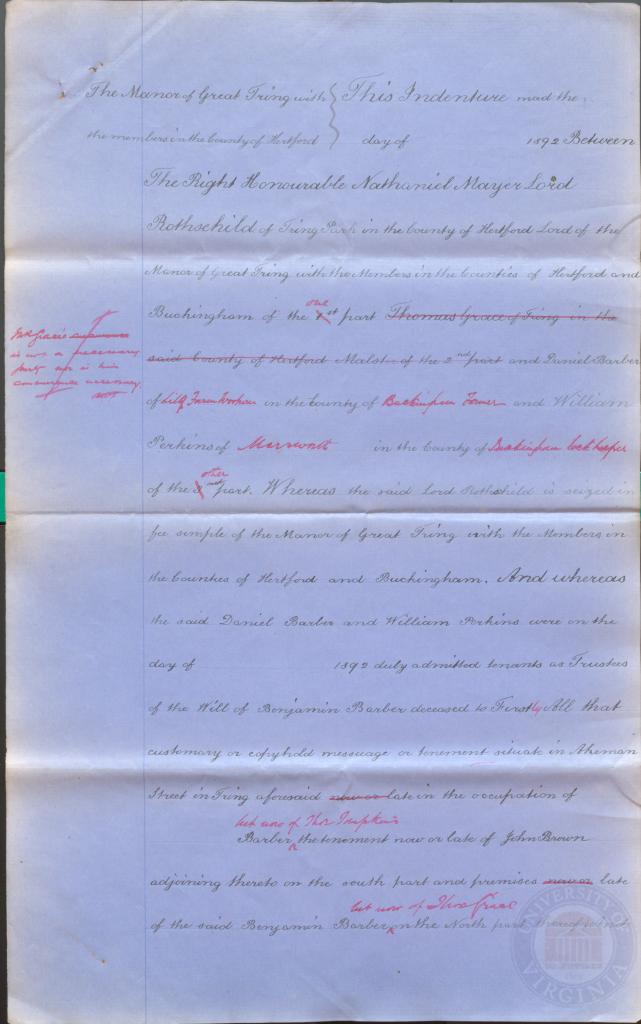 The Manor of Great Tring with } This Indenture mad the
the members in the County of Hertford } day of 1892 Between
The Right Honourable Nathaniel Mayer Lord
Rothschild of Tring Park in the County of Hertford Lord of the
Manor of Great Tring with the Members in the Counties of Hertford and
one
Buckingham of the 1st part Thomas Grace of Tring in the
said County of Hertford Malster of the 2nd part and Daniel Barber
Mr Grace's
is not a necessary
party nor is his
concurrence necessary
of in the County of Buckingham Farmer and William
Perkins of Marsworth in the County of Buckingham lock keeper
other
of the part. Whereas the said Lord Rothschild is seized in
fee simple of the Manor of Great Tring with the Members in
the Counties of Hertford and Buckingham. And whereas
the said Daniel Barber and William Perkins were on the
day of 1892 duly admitted tenants as Trustees
of the Will of Benjamin Barber deceased to Firstly All that
customary or copyhold messuage or tenement situate in Akeman
Street in Tring aforesaid now or late in the occupation of
but now of Thos
Barber the tenement now or late of John Brown
adjoining thereto on the south part and premises now or late
but now of Thos Grace
of the said Benjamin Barber on the North part thereof
UNIVERSITY OF VIRGINIA